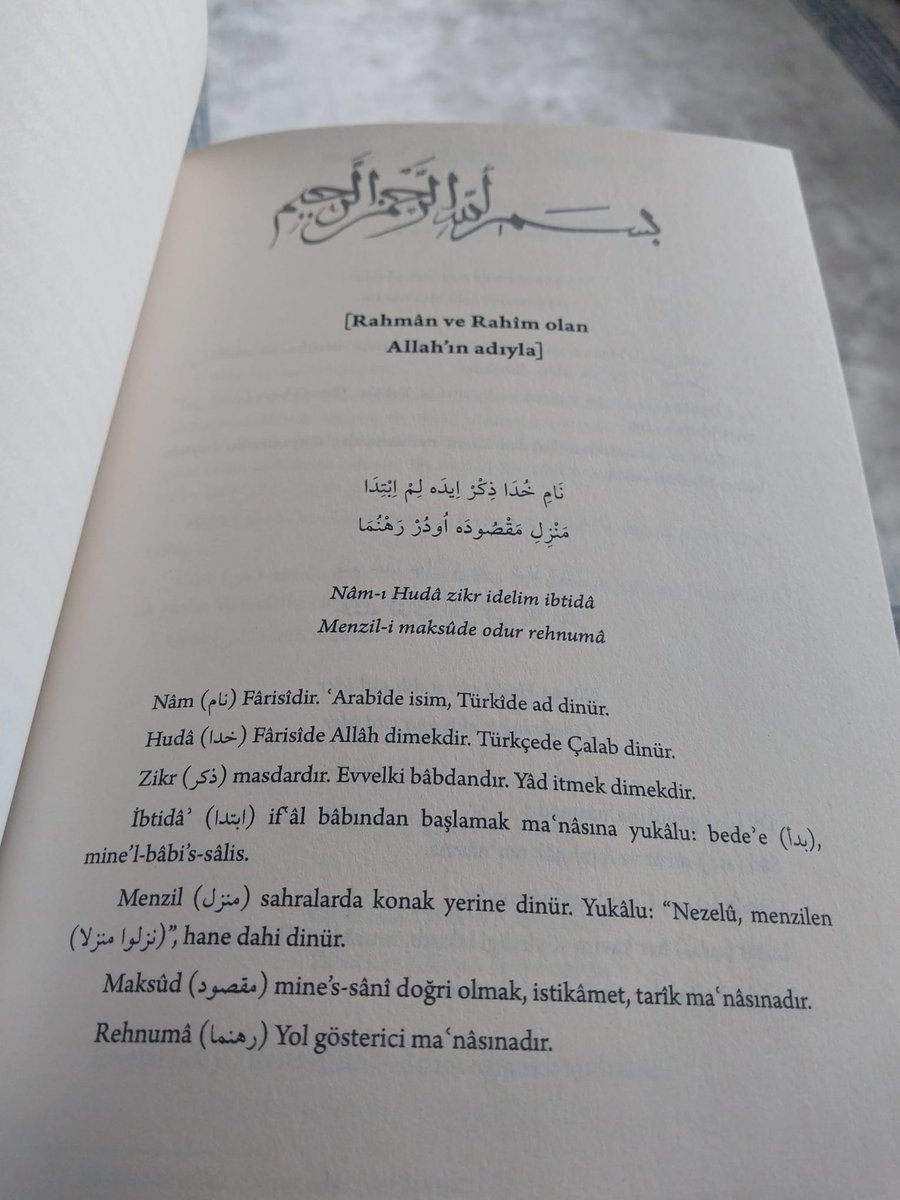 بسم الله الرحمن الرحيم
[Rahmân ve Rahîm olan
Allah’ın adıyla]
نَامِ خُدَا ذِكْرْ اِيدَه لِمْ اِبْتِدَا
مَنْزِلِ مَقْصُودَه اُودُرْ رَهْنُمَا
Nâm-ı Hudâ zikr idelim ibtidâ
Menzil-i maksûde odur rehnumâ
Nâm (نام) Fârisîdir. ʿArabîde isim, Türkîde ad dinür.
Hudâ (خدا) Fârisîde Allâh dimekdir. Türkçede Çalab dinür.
Zikr (ذكر) masdardır. Evvelki bâbdandır. Yâd itmek dimekdir.
İbtidâʾ (ابتدا) ifʿâl bâbından başlamak maʿnâsına yukâlu: bede’e (بدأ),
mine’l-bâbi’s-sâlis.
Menzil (منزل) sahralarda konak yerine dinür. Yukâlu: “Nezelû, menzilen
(نزلوا منزلا)”, hane dahi dinür.
Maksûd (مقصود) mine’s-sânî doğri olmak, istikâmet, tarîk maʿnâsınadır.
Rehnumâ (رهنما) Yol gösterici maʿnâsınadır.